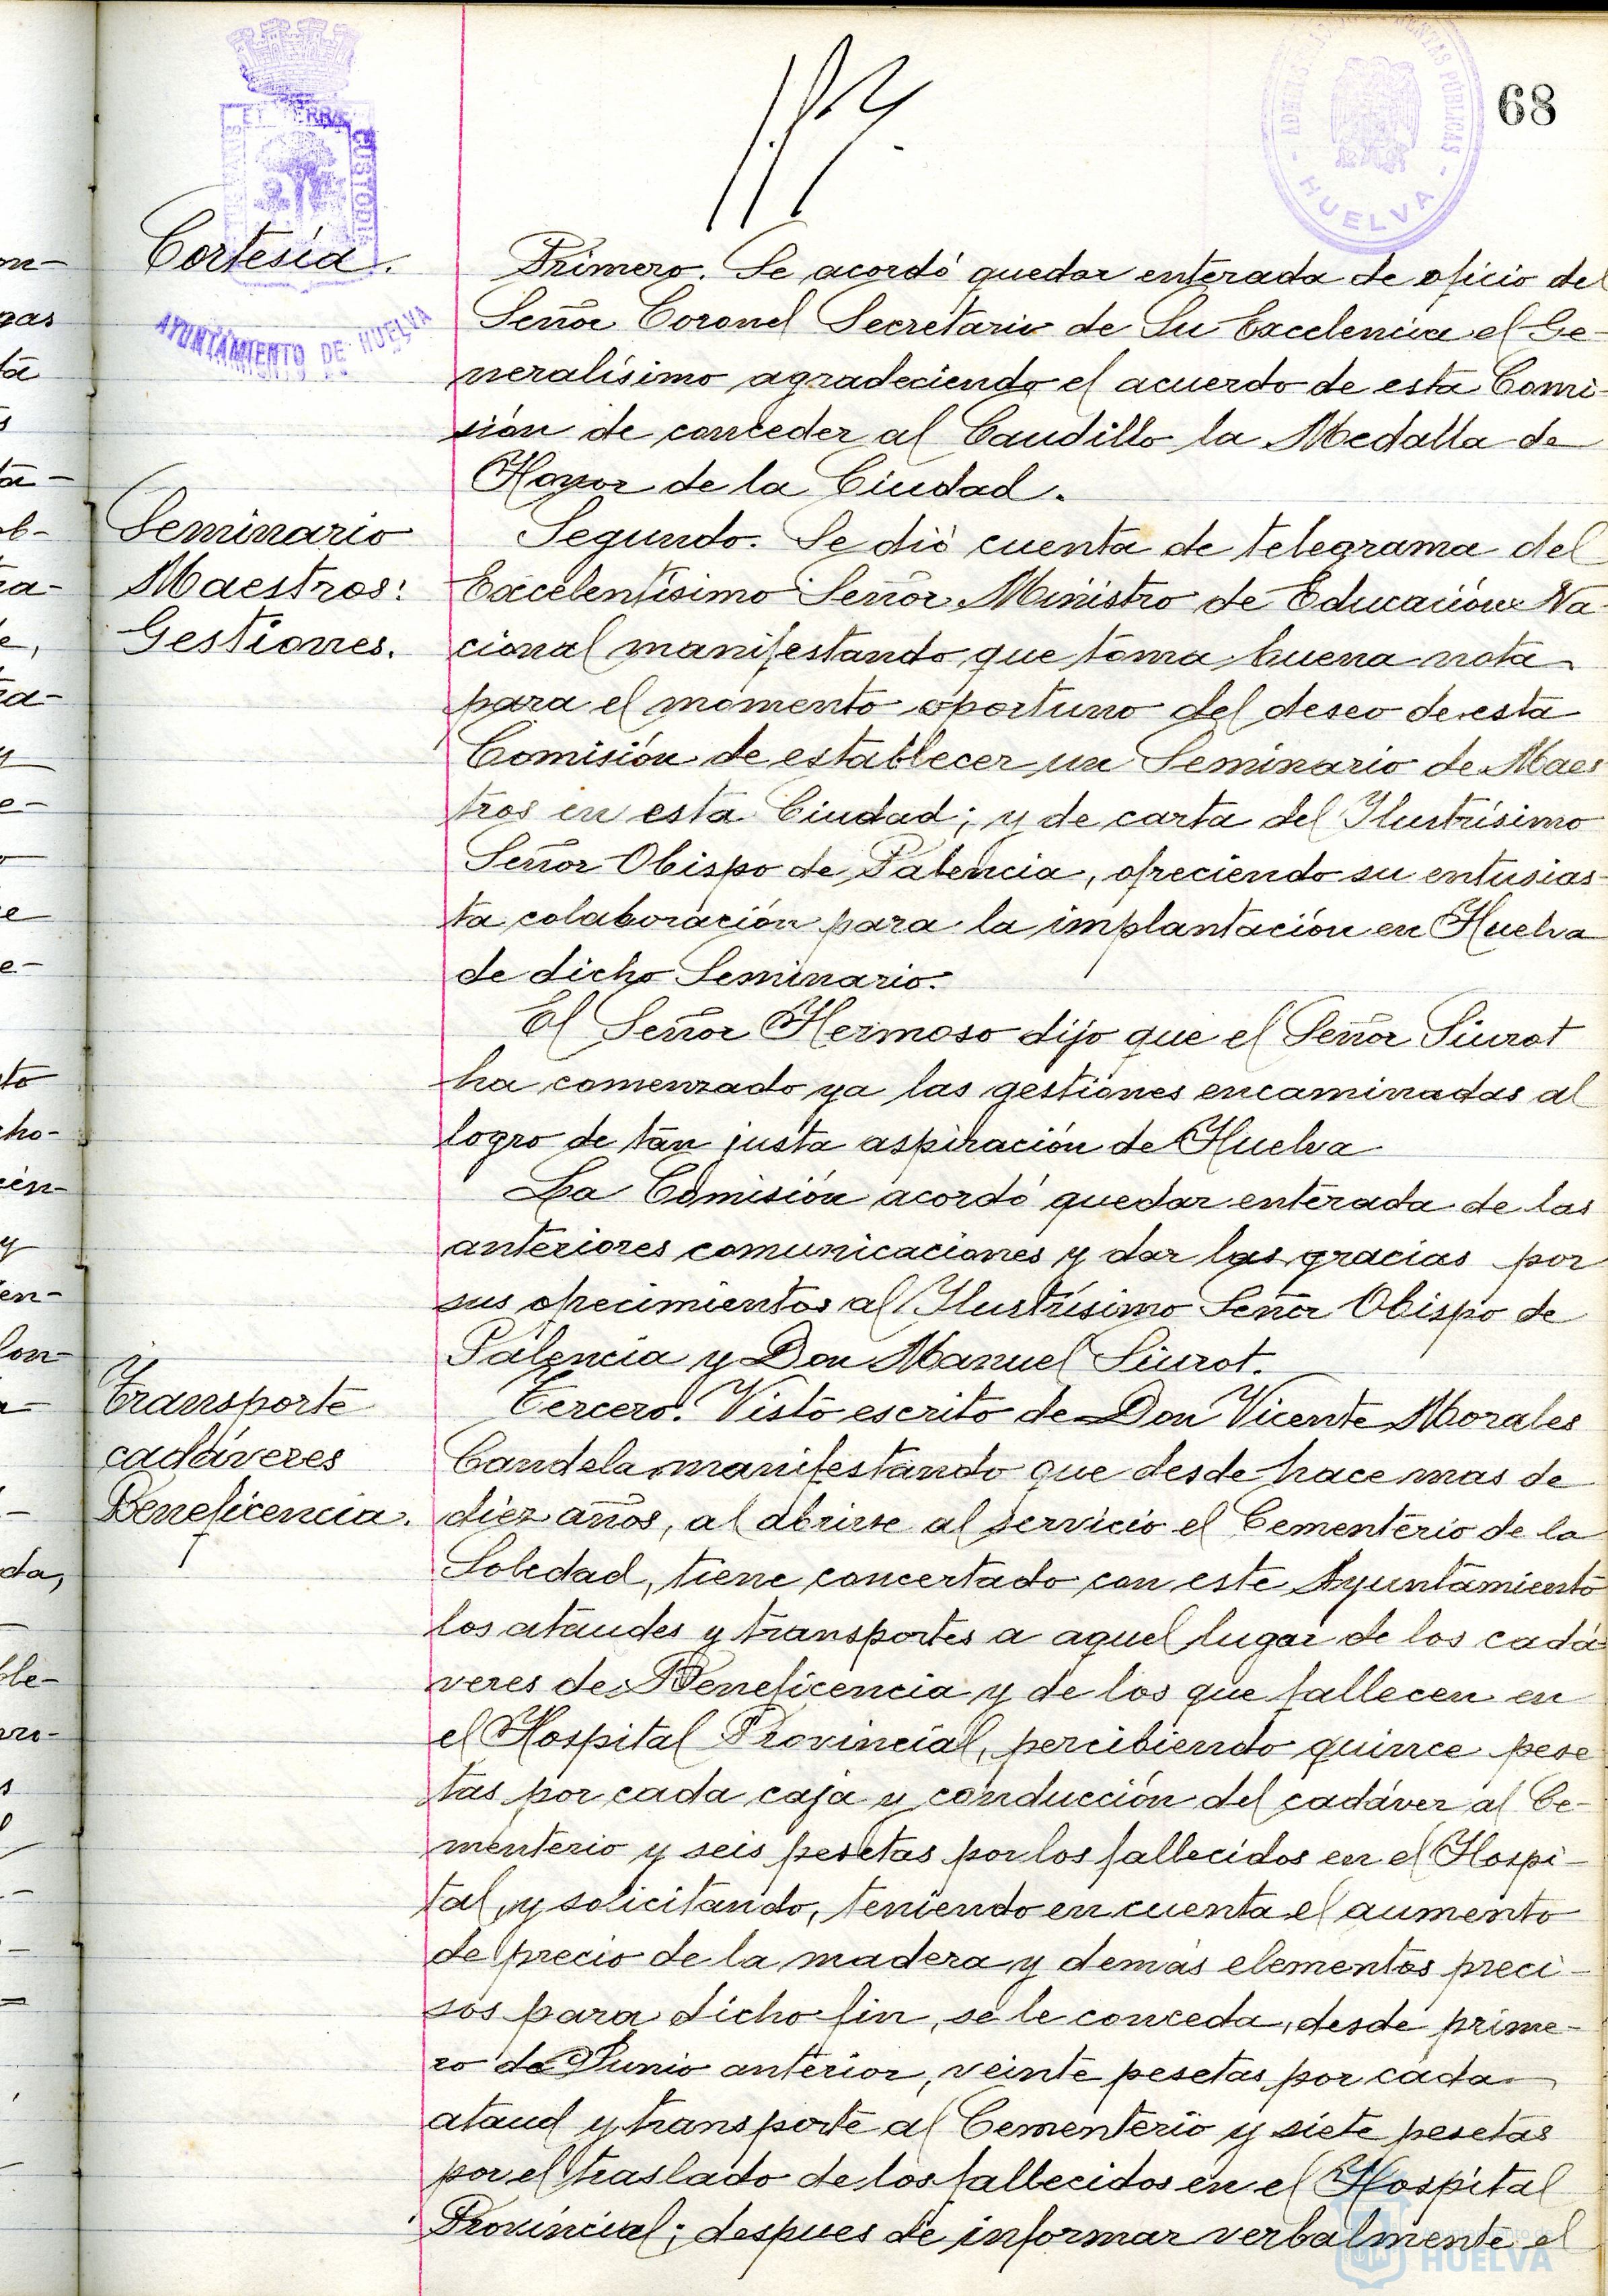 68
ET TERRAE
CUSTODIA
AYUNTAMIENTO DE HUELVA
HUELVA
Cortesía.
Primero. Se acordó quedar enterada de oficio del
Señor Coronel Secretario de Su Excelencia el Ge-
neralísimo agradeciendo el acuerdo de esta Comi-
sión de conceder al Caudillo la Medalla de
Honor de la Ciudad.
Seminario
Maestros:
Gestiones.
Segundo. Se dió cuenta de telegrama del
Excelentísimo Señor Ministro de Educación Na-
cional manifestando que toma buena nota
para el momento oportuno del deseo de esta
Comisión de establecer un Seminario de Maes
tros en esta Ciudad; y de carta del Ilustrísimo
Señor Obispo de Palencia, ofreciendo su entusias-
ta colaboración para la implantación en Huelva
de dicho Seminario.
El Señor Hermoso dijo que el Señor Siurot
ha comenzado ya las gestiones encaminadas al
logro de tan justa aspiración de Huelva
La Comisión acordó quedar enterada de las
anteriores comunicaciones y dar las gracias por
sus ofrecimientos al Ilustrísimo Señor Obispo de
Palencia y Don Manuel Siurot.
Transporte
cadáveres
Beneficencia.
Tercero. Visto escrito de Don Vicente Morales
Candela manifestando que desde hace mas de
diez años, al abrirse al servicio el Cementerio de la
Soledad, tiene concertado con este Ayuntamiento
los ataudes y transportes a aquel lugar de los cadá
veres de Beneficencia y de los que fallecen en
el Hospital Provincial, percibiendo quince pese
tas por cada caja y conducción del cadáver al Ce-
menterio y seis pesetas por los fallecidos en el Hospi-
tal, y solicitando, teniendo en cuenta el aumento
de precio de la madera y demás elementos preci-
sos para dicho fin, se le conceda, desde prime-
ro de Junio anterior, veinte pesetas por cada
ataud y transporte al Cementerio y siete pesetas
por el traslado de los fallecidos en el Hospital
Provincial; despues de informar verbalmente el
Ayuntamiento de
HUELVA